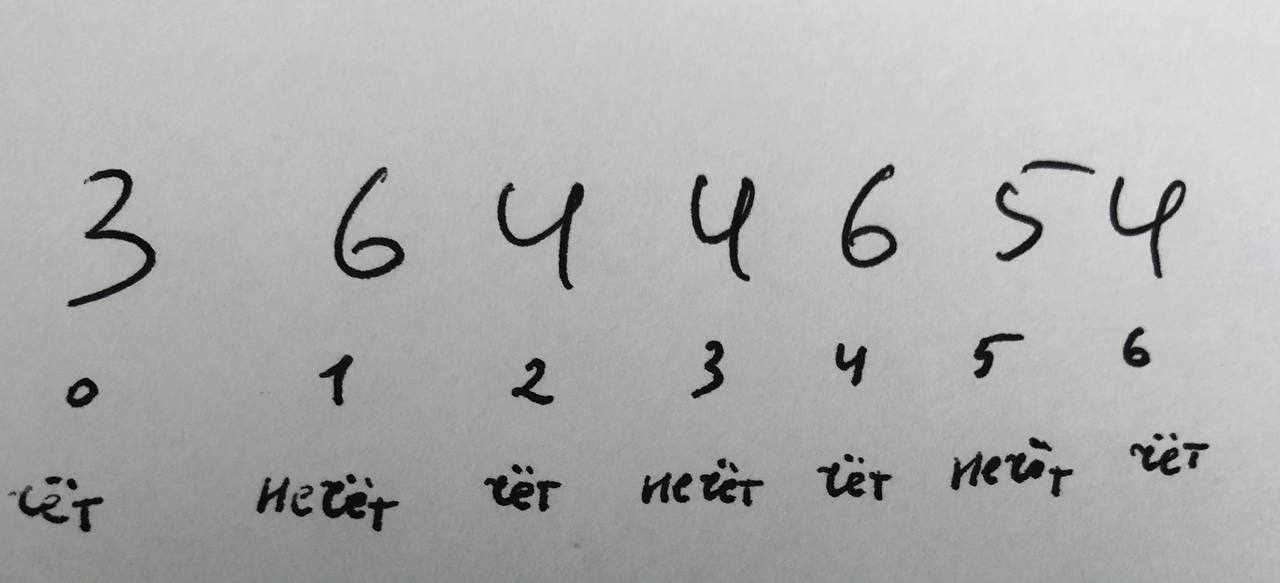 3 6 4 4 6 5 4
0 1 2 3 4 5 6
чёт нечёт чёт нечёт чёт нечёт чёт